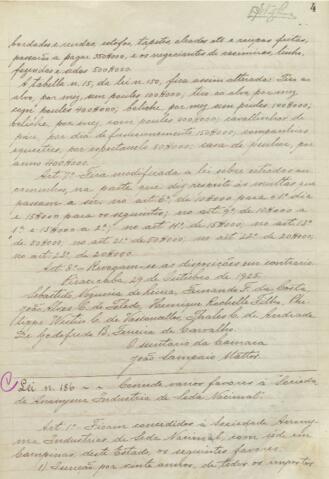 4
bordados e rendas, estofos, tapetes, chales até e roupas feitas,
passarão a pagar 350$000, e os negociantes de casemiras, linho,
fazendas e sedas 500$000.
A tabella n. 15, da lei n. 150, fica assim alterada: tiro ao
alvo, por mez, sem poules 100$000, tiro ao alvo por mez
com poules 400$000; boliche por mez, sem poules 100$000;
boliche, por mez, com poules 400$000; cavallinhos de
páo, por dia de funccionamento 15$000; companhias
equestres, por espectaculo 50$000; casa de pasto, por
anno 400$000.
Art. 7º Fica modificada a lei sobre estradas e
caminhos, na parte que diz respeito ás multas que
passam a ser: no art. 6º de 10$000 para o 1º dia
e 15$000 para os seguintes; no art. 9º de 10$000 a
1ª e 15$000 a 2ª; no art. 11º de 15$000; no art. 13º
de 20$000; no art. 21º de 50$000; no art. 22º de 20$000;
no art. 23º de 20$000.
Art. 8º Revogam-se as disposições em contrario.
Piracicaba, 29 de Outubro de 1925.
Sebastião Nogueira de Lima, Fernando F. da Costa
João Alves C. de Toledo, Henrique Rochelle Filho, Phi
lippe Westin C. de Vasconcellos, Thales C. de Andrade
Godofredo B. Ferreira de Carvalho.
O secretario da Camara
João Sampaio Mattos.
Lei n. 186 - Concede varios favores á Socieda
de Anonyma Industria de Seda Nacional.
Art. 1º Ficam concedidos á Sociedade Anony
ma Industrias de Seda Nacional, com séde em
Campinas, deste Estado, os seguintes favores:
1) Isenção por vinte annos, de todos os impostos